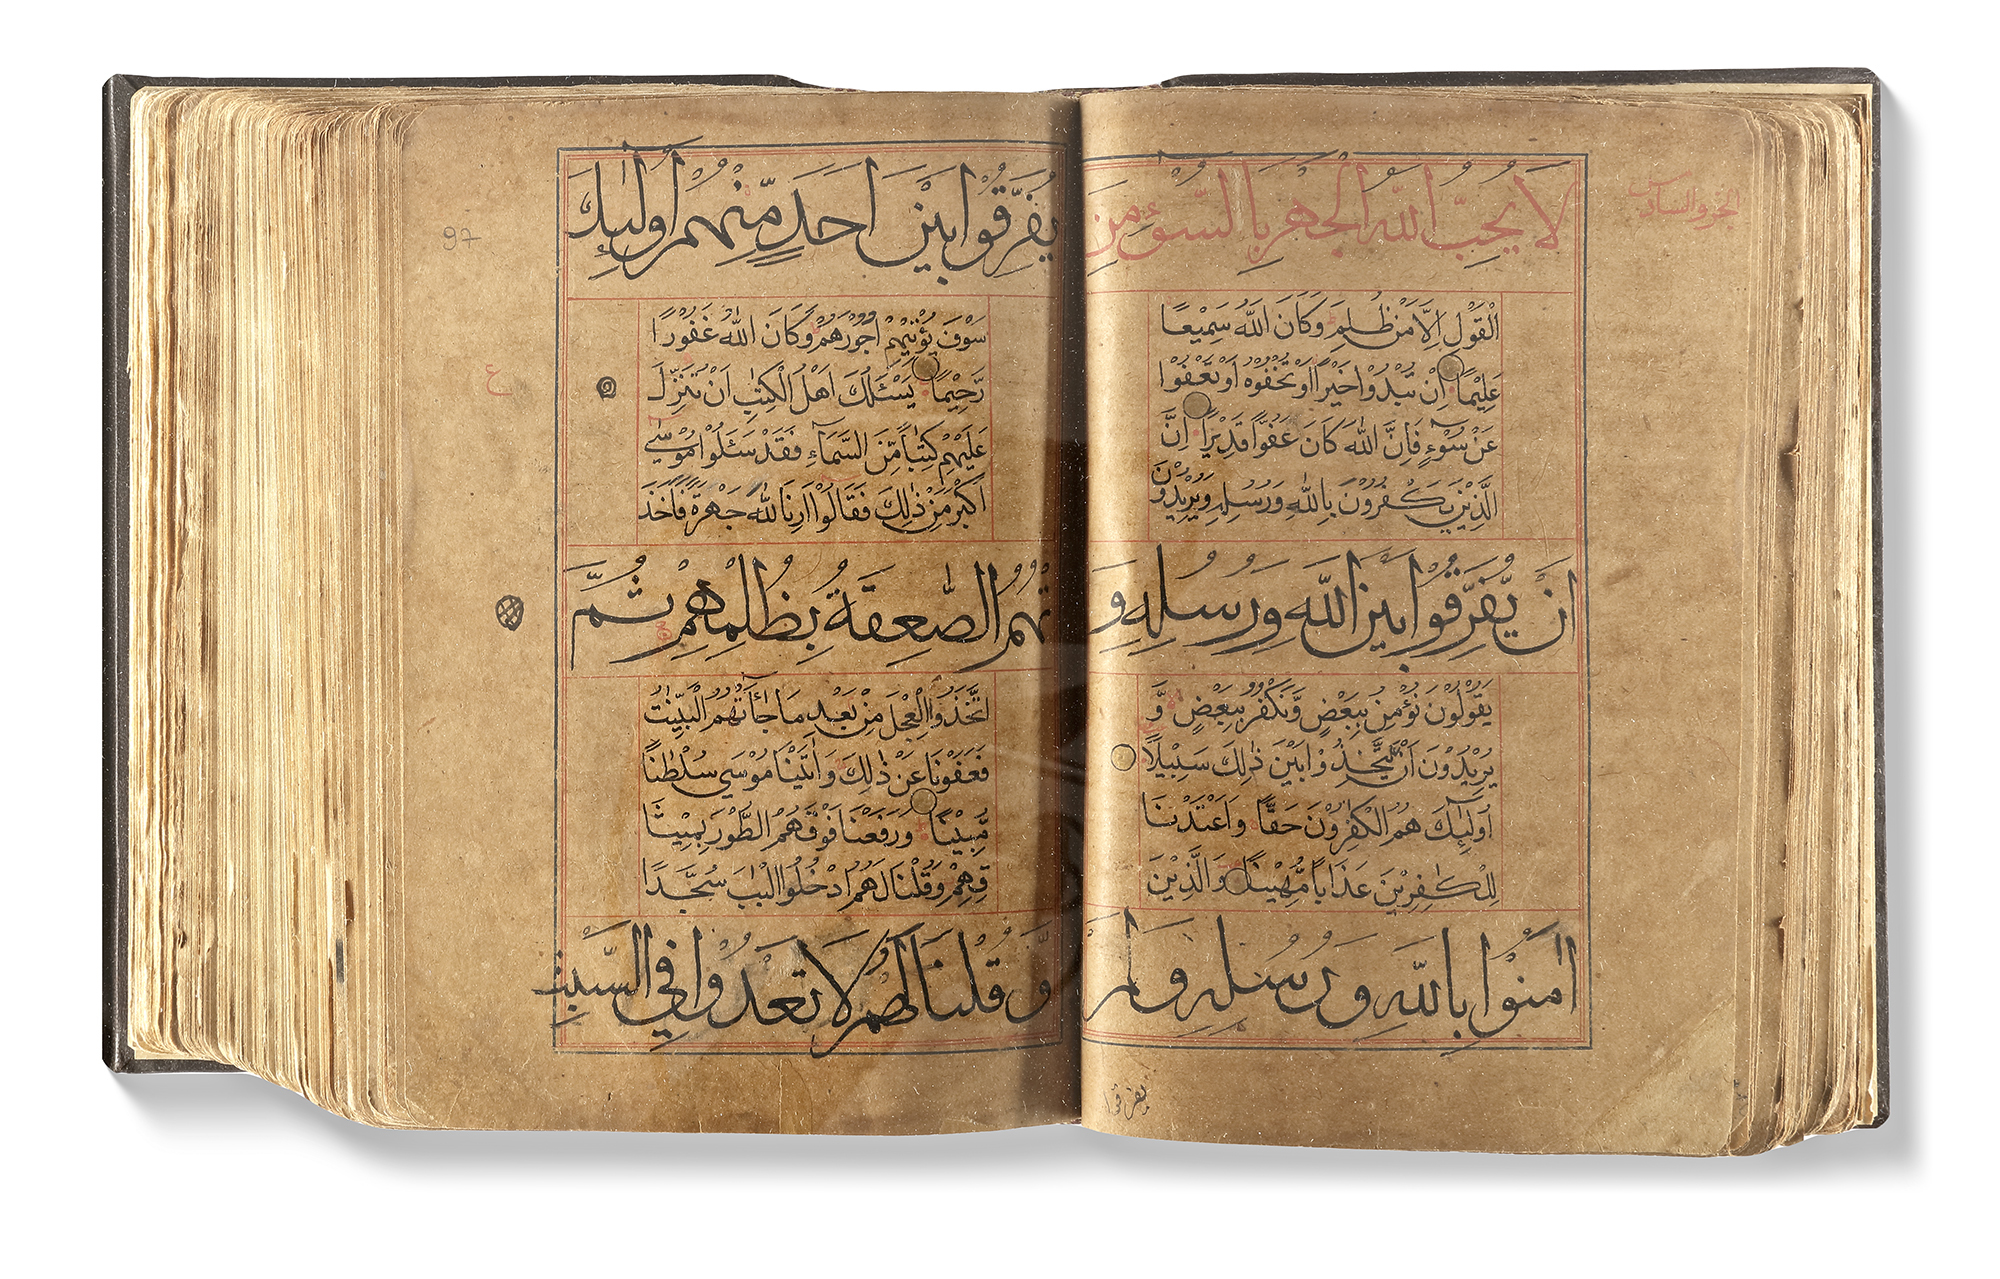 الجزو السادس
لَا يُحِبُّ اللّٰهُ الْجَهْرَ بِالسُّوْءِ مِنَ
الْقَوْلِ اِلَّا مَنْ ظُلِمَ وَكَانَ اللّٰهُ سَمِيْعًا
عَلِيْمًا اِنْ تُبْدُوْا خَيْرًا اَوْ تُخْفُوْهُ اَوْ تَعْفُوْا
عَنْ سُوْٓءٍ فَاِنَّ اللّٰهَ كَانَ عَفُوًّا قَدِيْرًا اِنَّ
الَّذِيْنَ يَكْفُرُوْنَ بِاللّٰهِ وَرُسُلِهٖ وَيُرِيْدُوْنَ
اَنْ يُّفَرِّقُوْا بَيْنَ اللّٰهِ وَرُسُلِهٖ وَ
يَقُوْلُوْنَ نُؤْمِنُ بِبَعْضٍ وَّنَكْفُرُ بِبَعْضٍ وَّ
يُرِيْدُوْنَ اَنْ يَّتَّخِذُوْا بَيْنَ ذٰلِكَ سَبِيْلًا
اُولٰٓئِكَ هُمُ الْكٰفِرُوْنَ حَقًّا وَاَعْتَدْنَا
لِلْكٰفِرِيْنَ عَذَابًا مُّهِيْنًا وَالَّذِيْنَ
اٰمَنُوْا بِاللّٰهِ وَرُسُلِهٖ وَلَمْ
يفرقوا
97
يُفَرِّقُوْا بَيْنَ اَحَدٍ مِّنْهُمْ اُولٰٓئِكَ
سَوْفَ يُؤْتِيْهِمْ اُجُوْرَهُمْ وَكَانَ اللّٰهُ غَفُوْرًا
رَّحِيْمًا يَسْئَلُكَ اَهْلُ الْكِتٰبِ اَنْ تُنَزِّلَ
ع
عَلَيْهِمْ كِتٰبًا مِّنَ السَّمَآءِ فَقَدْ سَئَلُوْا مُوْسٰى
اَكْبَرَ مِنْ ذٰلِكَ فَقَالُوْا اَرِنَا اللّٰهَ جَهْرَةً فَاَخَذَ
تْهُمُ الصّٰعِقَةُ بِظُلْمِهِمْ ثُمَّ
اتَّخَذُوا الْعِجْلَ مِنْ بَعْدِ مَا جَآءَتْهُمُ الْبَيِّنٰتُ
فَعَفَوْنَا عَنْ ذٰلِكَ وَاٰتَيْنَا مُوْسٰى سُلْطٰنًا
مُّبِيْنًا وَرَفَعْنَا فَوْقَهُمُ الطُّوْرَ بِمِيْثَا
قِهِمْ وَقُلْنَا لَهُمُ ادْخُلُوا الْبَابَ سُجَّدًا
وَّقُلْنَا لَهُمْ لَا تَعْدُوْا فِي السَّبْتِ